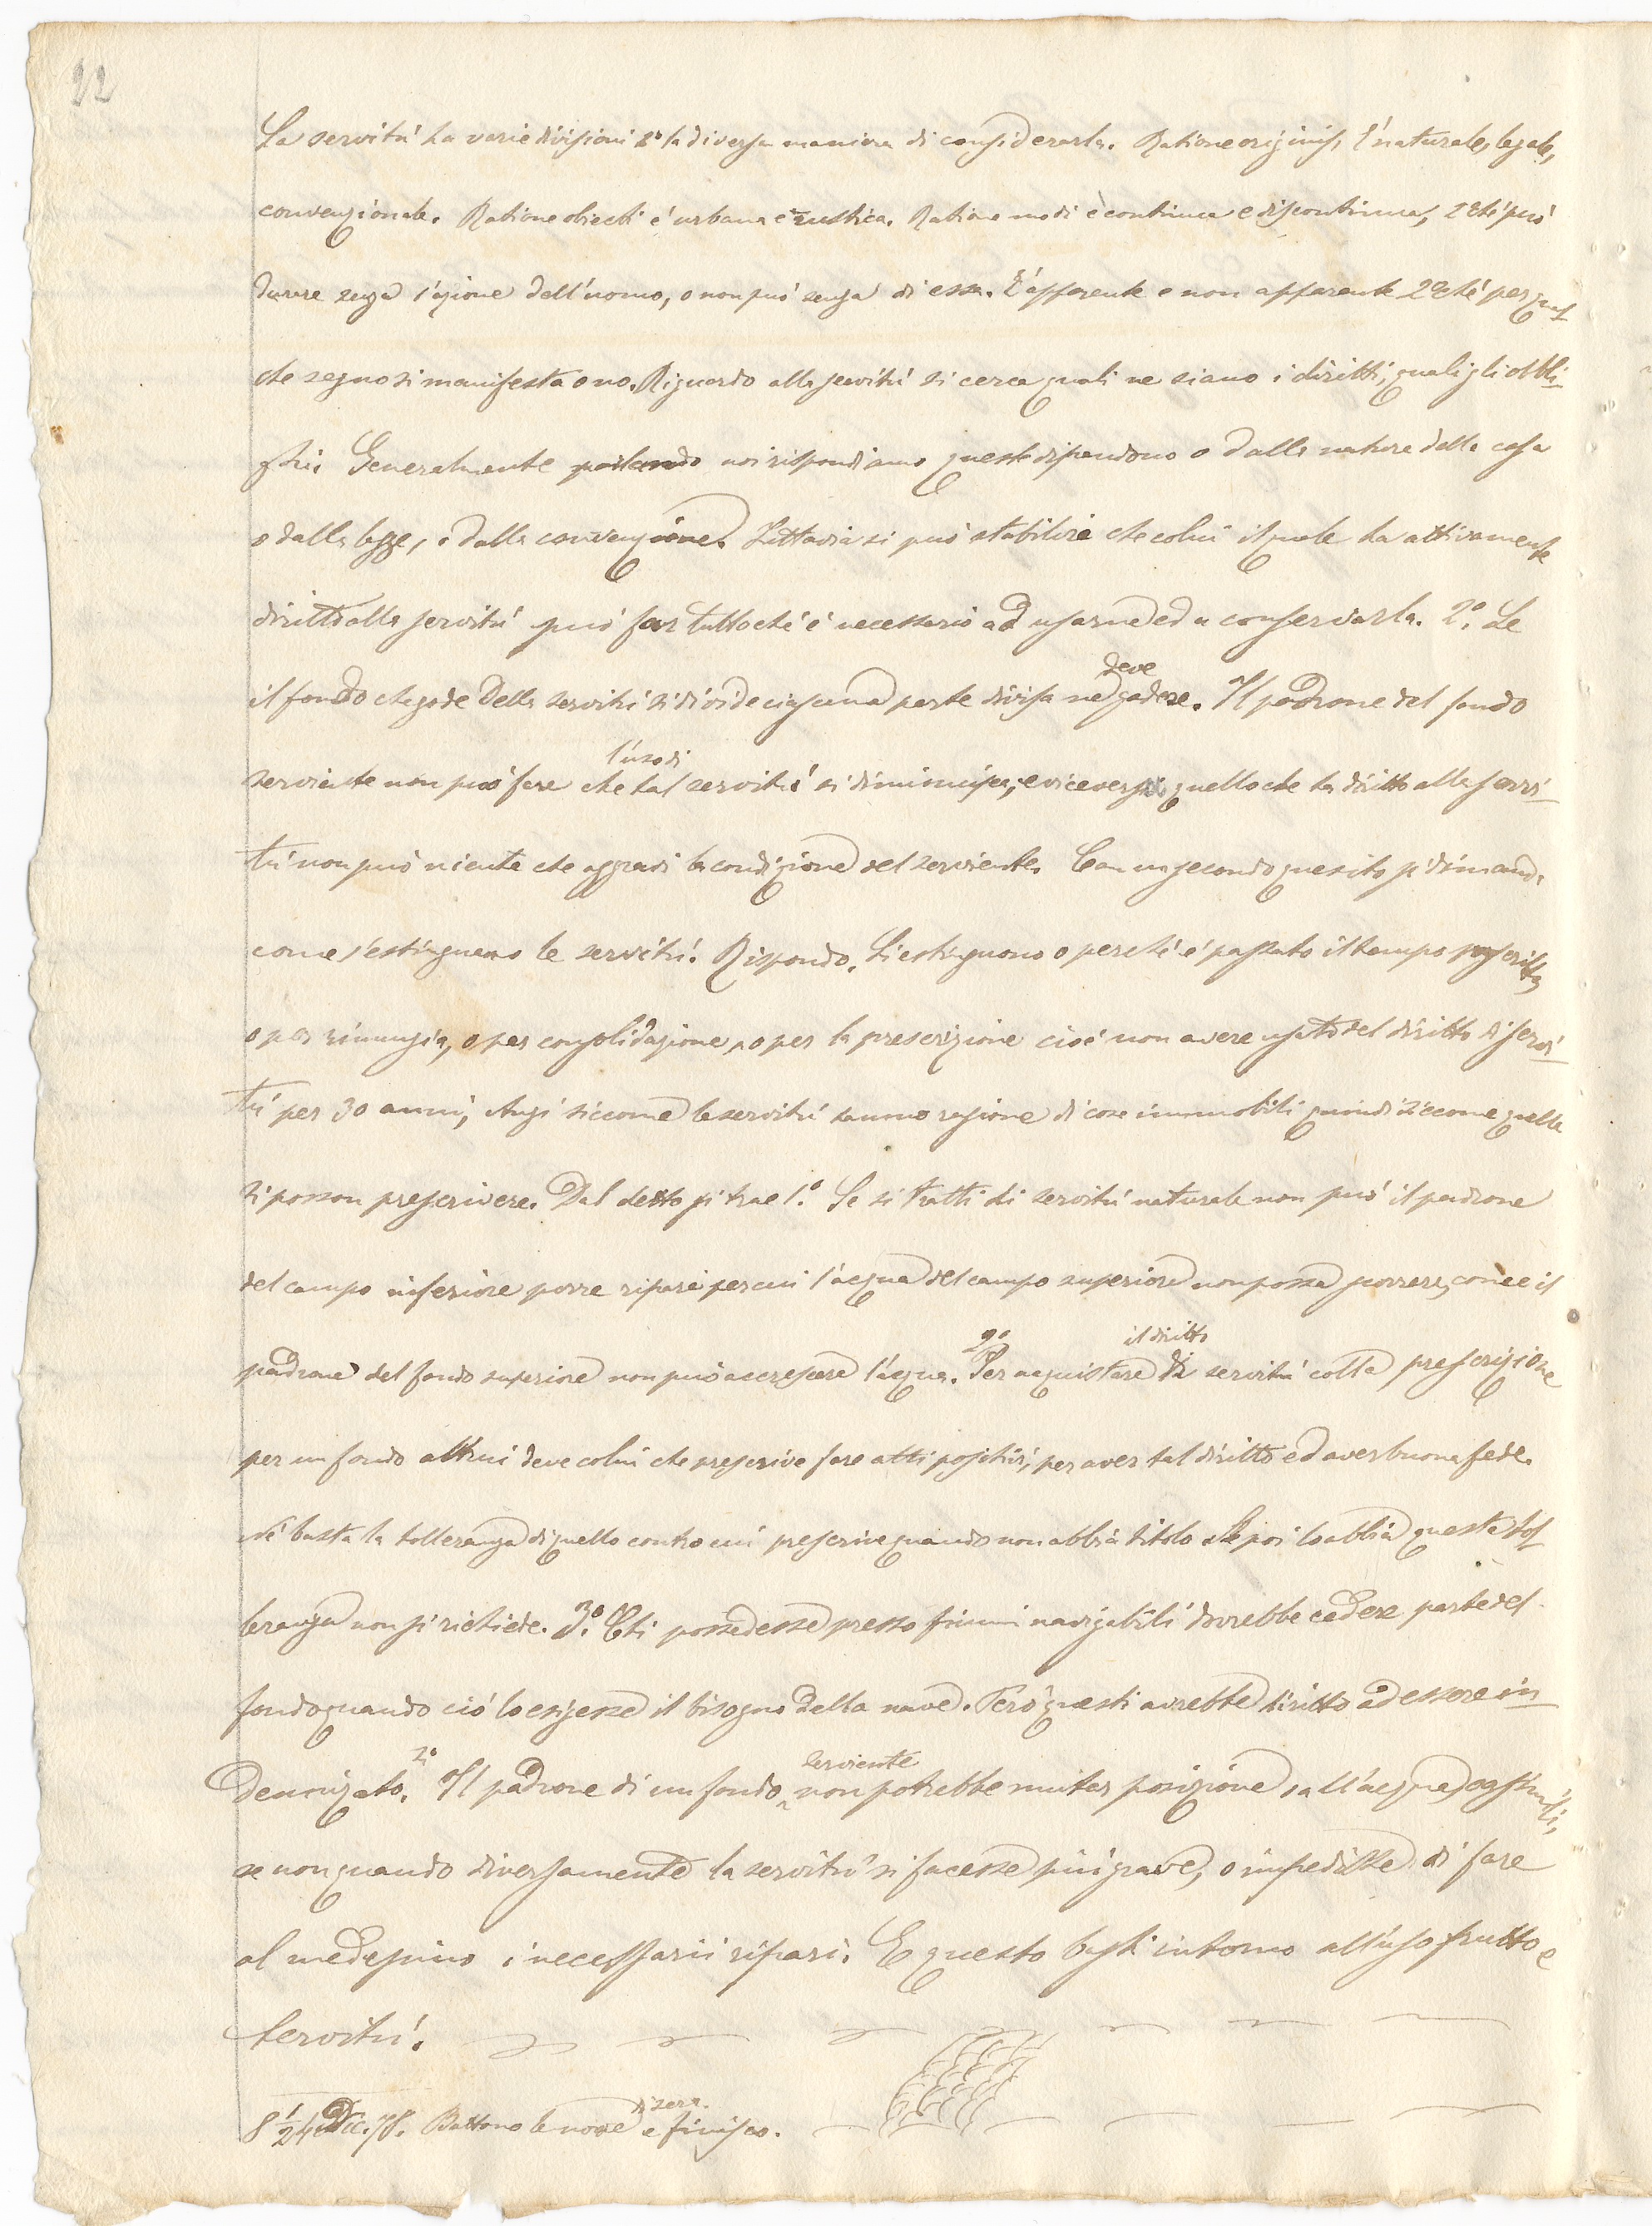 22
La servitú ha varie divisioni 2º la diversa maniera di considerarla. Ratione originis, é naturale, legale,
convenzionale. Ratione obiecti é urbana e rustica. Ratione modi è continua e discontinua, 2º ché può
durare senza l'azione dell'uomo, o non può senza di essa. É apparente e non apparente 2º ché per qual
che segno si manifesta o no. Riguardo alla servitú si cerca quali ne siano i diritti, quali gli obbli-
ghi. Generalmente parlando noi rispondiamo queste dipendono o dalla natura della cosa
o dalla legge, o dalla convenzione. Tuttavia si può stabilire che colui il quale ha attivamente
diritto alla servitú può far tutto ché é necessario ad usarne ed a conservarla. 2º. Se
il fondo che gode della servitú si divide ciascuna parte divisa ne deve godere. Il padrone del fondo
serviente non può fare che l'uso di tal servitú si diminuisca, e viceversa quello che ha diritto alla servi-
tú non può niente che aggravi la condizione del serviente. Con un secondo quesito si dimanda
come s'estinguono le servitú. Rispondo. Si estinguono o perché é passato il tempo
o per rinunzia, o per consolidazione, o per la prescrizione cioé non avere usato del diritto di servi-
tú per 30 anni, Anzi siccome le servitú hanno ragione di cose immobili quindi siccome quelle
si posson prescrivere. Dal detto si trae 1.º Se si tratti di servitú naturale non può il padrone
del campo inferiore porre ripari per cui l'acqua del campo superiore non possa scorrere, come il
padrone del fondo superiore non può accrescere l'acqua. 2º Per acquistare il diritto di servitú colla prescrizione
per un fondo altrui deve colui che prescrive fare atti positivi, per aver tal diritto ed aver buona fede.
Né basta la tolleranza di quello contro cui prescrive quando non abbia titolo che se poi lo abbia questa tol
leranza non si richiede. 3º. Chi possedesse presso fiumi navigabili dovrebbe cedere parte del
fondo quando ció lo esigesse il bisogno della nave. Però questi avrebbe diritto ad essere in-
dennizato. Il padrone di un fondo serviente non potrebbe mutar posizione, all'acqua
se non quando diversamente la servitú si facesse più grave, o impedisse di fare
al medesimo i necessarii ripari. E questo basti intorno all'uso frutto e
servitú.
8 1/2 24 Dic. 78. Battono le nove di sera e finisco.